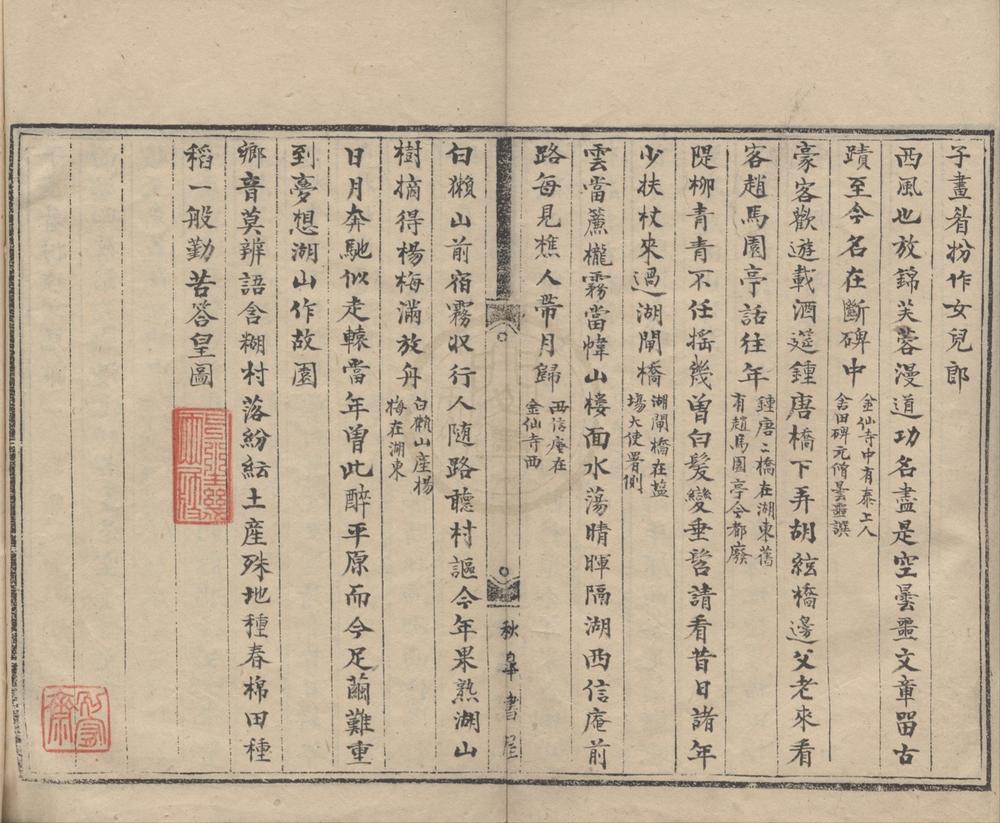 子畫眉扮作女兒郎
西風也放錦芙蓉漫道功名盡是空曇噩文章留古
蹟至今名在斷碑中金仙寺中有泰上人
舍田碑元僧曇噩譔
豪客歡遊載酒筵鍾唐橋下弄胡絃橋邊父老來看
客趙馬園亭話往年鍾唐二橋在湖東舊
有趙馬園亭今都廢
隄柳青青不任搖幾曾白髮變垂髫請看昔日諸年
少扶杖來過湖閘橋湖閘橋在盐
場大使署側
雲當薦櫳霧當幃山樓面水蕩晴暉隔湖西信庵前
路每見樵人帶月歸西信庵在
金仙寺西
白獺山前宿霧收行人随路聽村謳今年果熟湖山
樹摘得楊梅滿放舟白獺山産楊
梅在湖東
日月奔馳似走轅當年曾此醉平原而今足繭難重
到夢想湖山作故園
鄉音莫辨語含糊村落紛紜土産殊地種春棉田種
稻一般勤苦答皇圖
秋皋書屋